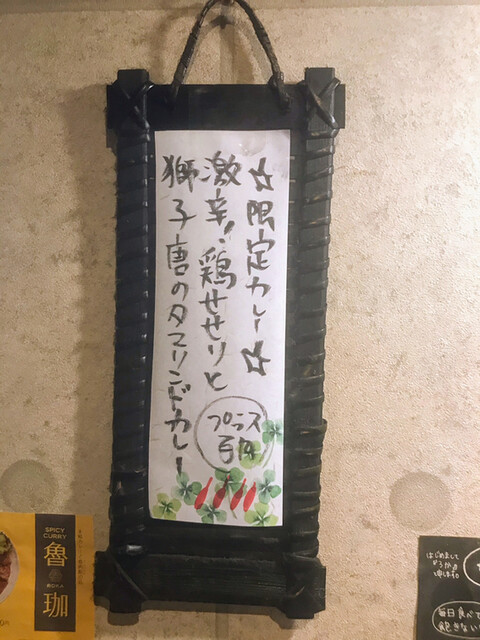 ☆限定カレー☆
激辛!鶏せせりと
獅子唐のタマリンドカレー
プラス
SPICY
CURRY
魯珈
ROKA
はじめまして
"ろか"と
申します
毎日食べて
飽きない